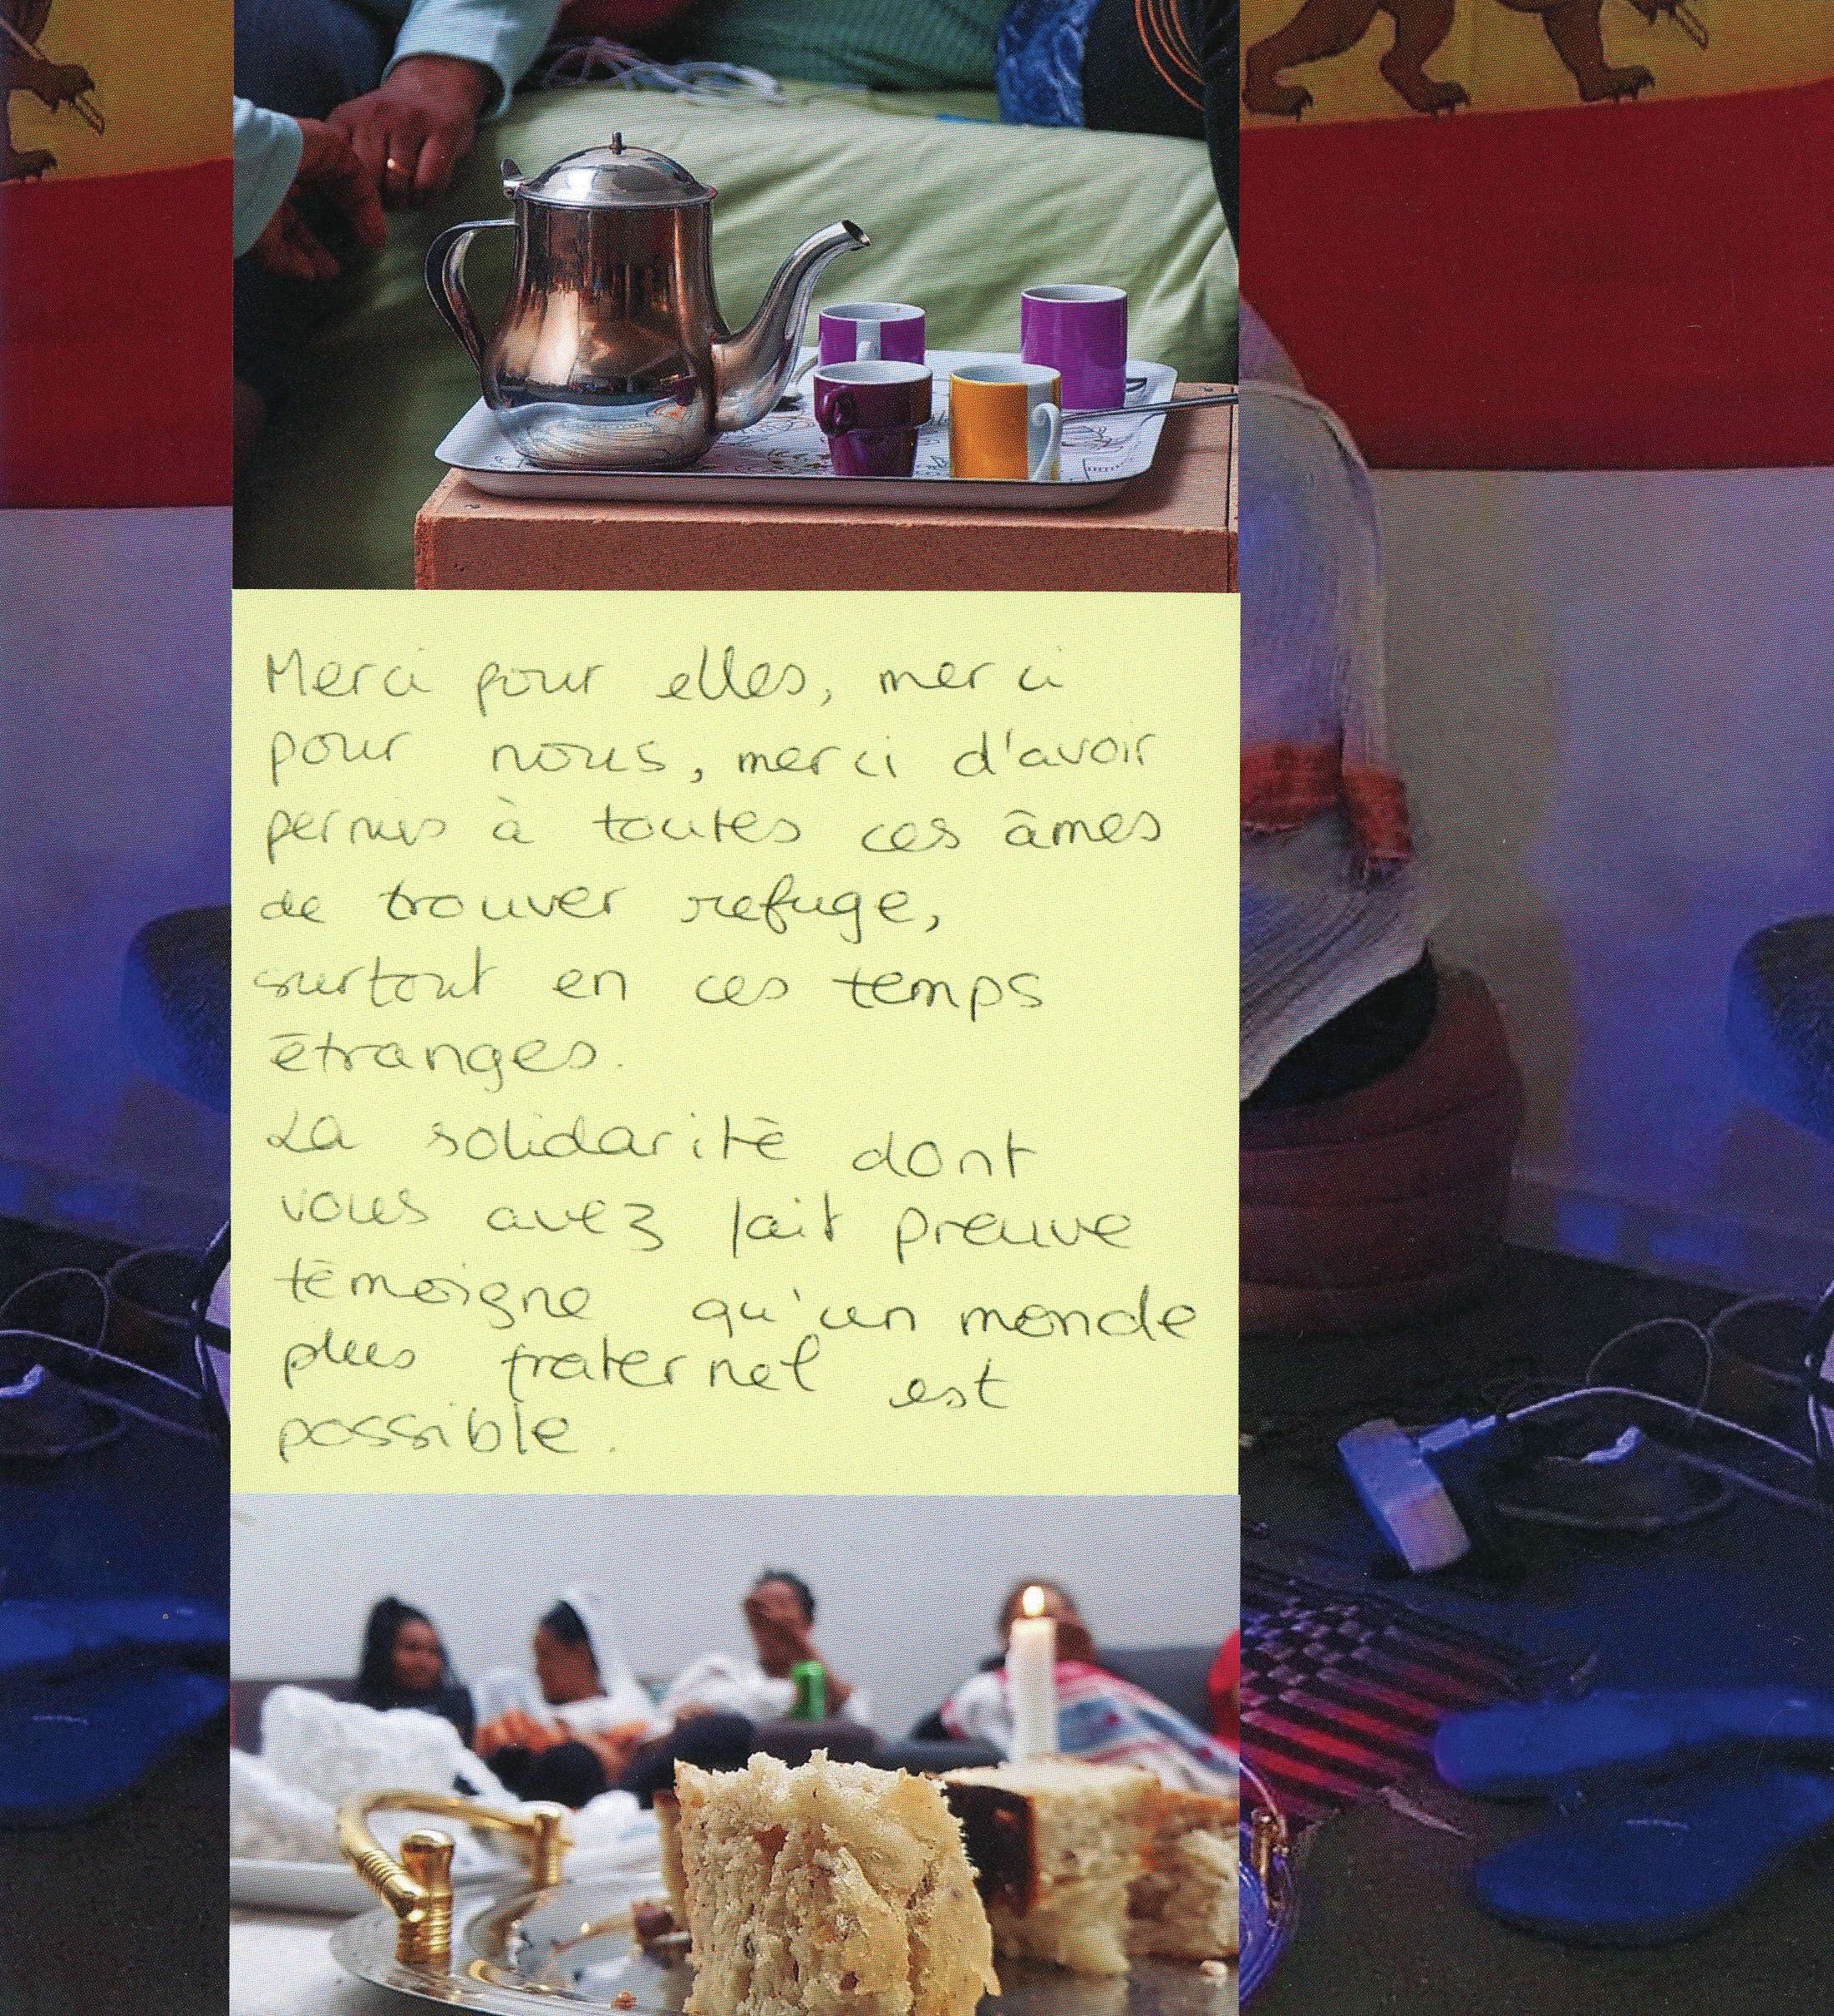 Merci pour elles, merci
pour nous, merci d'avoir
permis à toutes ces âmes
de trouver refuge,
surtout en ces temps
étranges.
La solidarité dont
vous avez fait preuve
témoigne qu'un monde
plus fraternel est
possible.